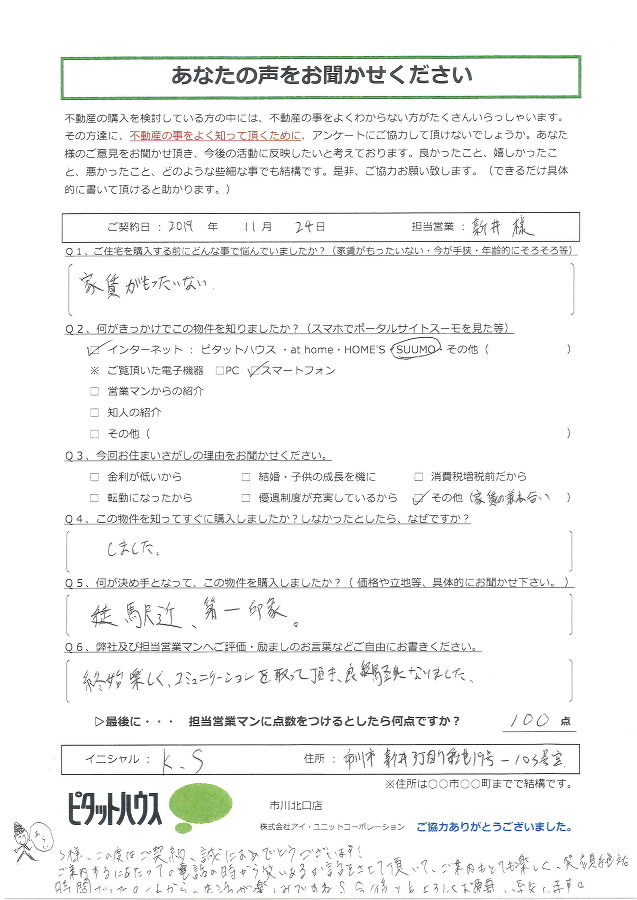 あなたの声をお聞かせください
不動産の購入を検討している方の中には、不動産の事をよくわからない方がたくさんいらっしゃいます。
その方達に、不動産の事をよく知って頂くために、アンケートにご協力して頂けないでしょうか。あなた
様のご意見をお聞かせ頂き、今後の活動に反映したいと考えております。良かったこと、嬉しかったこ
と、悪かったこと、どのような些細な事でも結構です。是非、ご協力お願い致します。（できるだけ具体
的に書いて頂けると助かります。）
ご契約日：2019 年 11 月 24 日 担当営業：新井 様
Q１、ご住宅を購入する前にどんな事で悩んでいましたか？（家賃がもったいない・今が手狭・年齢的にそろそろ等）
家賃がもったいない
Q２、何がきっかけでこの物件を知りましたか？（スマホでポータルサイトスーモを見た等）
☑ インターネット：ピタットハウス・at home・HOME'S・SUUMO・その他（ ）
※ ご覧頂いた電子機器 □PC ☑スマートフォン
□ 営業マンからの紹介
□ 知人の紹介
□ その他（ ）
Q３、今回お住まいさがしの理由をお聞かせください。
□ 金利が低いから □ 結婚・子供の成長を機に □ 消費税増税前だから
□ 転勤になったから □ 優遇制度が充実しているから ☑ その他（家賃の兼ね合い ）
Q４、この物件を知ってすぐに購入しましたか？しなかったとしたら、なぜですか？
しました。
Q５、何が決め手となって、この物件を購入しましたか？（ 価格や立地等、具体的にお聞かせ下さい。）
駅近、第一印象。
Q６、弊社及び担当営業マンへご評価・励ましのお言葉などご自由にお書きください。
終始楽しく、コミュニケーションを取って頂き、良い経験になりました。
▷最後に・・・ 担当営業マンに点数をつけるとしたら何点ですか？ 100 点
イニシャル： K.S 住所：市川市 新井 3丁目 19号－103号室
※住所は〇〇市〇〇町までで結構です。
ピタットハウス
市川北口店
株式会社アイ・ユニットコーポレーション ご協力ありがとうございました。
S様、この度はご契約、誠におめでとうございます！
ご案内するにあたってお電話の時から笑いあるお話をさせて頂いて、ご案内もとても楽しく、笑顔
時間でした